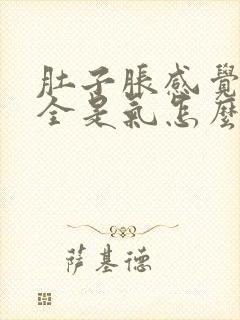 肚子脹感覺
全是氣怎麼
萨基德